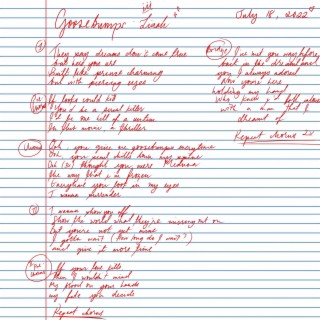 Goosebumps - Linah
July 18, 2022
①
They say dreams don't come true
but here you are
Built like prince charming
but with piercing eyes
Pre chorus
If looks could kill
You'd be a serial killer
I'd be one hell of a victim
In this movie a thriller
Chorus
Ooh you give me goosebumps everytime
Ooh your send chills down my spine
Ooh I thought you were Medusa
the way that I'm frozen
Everytime you look in my eyes
I wanna surrender
②
I wanna show you off
Show the world what they're missing out on
but you're not yet mine
I gotta wait (How long do I wait?)
and give it more time
Pre chorus
If your love kills
then I wouldn't mind
My blood on your hands
my fate you decide
Repeat chorus
Bridge
I've met you ways before
back in the dreamland
you I always adored
Now you're here
holding my hand
Who knew I'd fall
with a man that I
dreamt of
Repeat chorus 2x